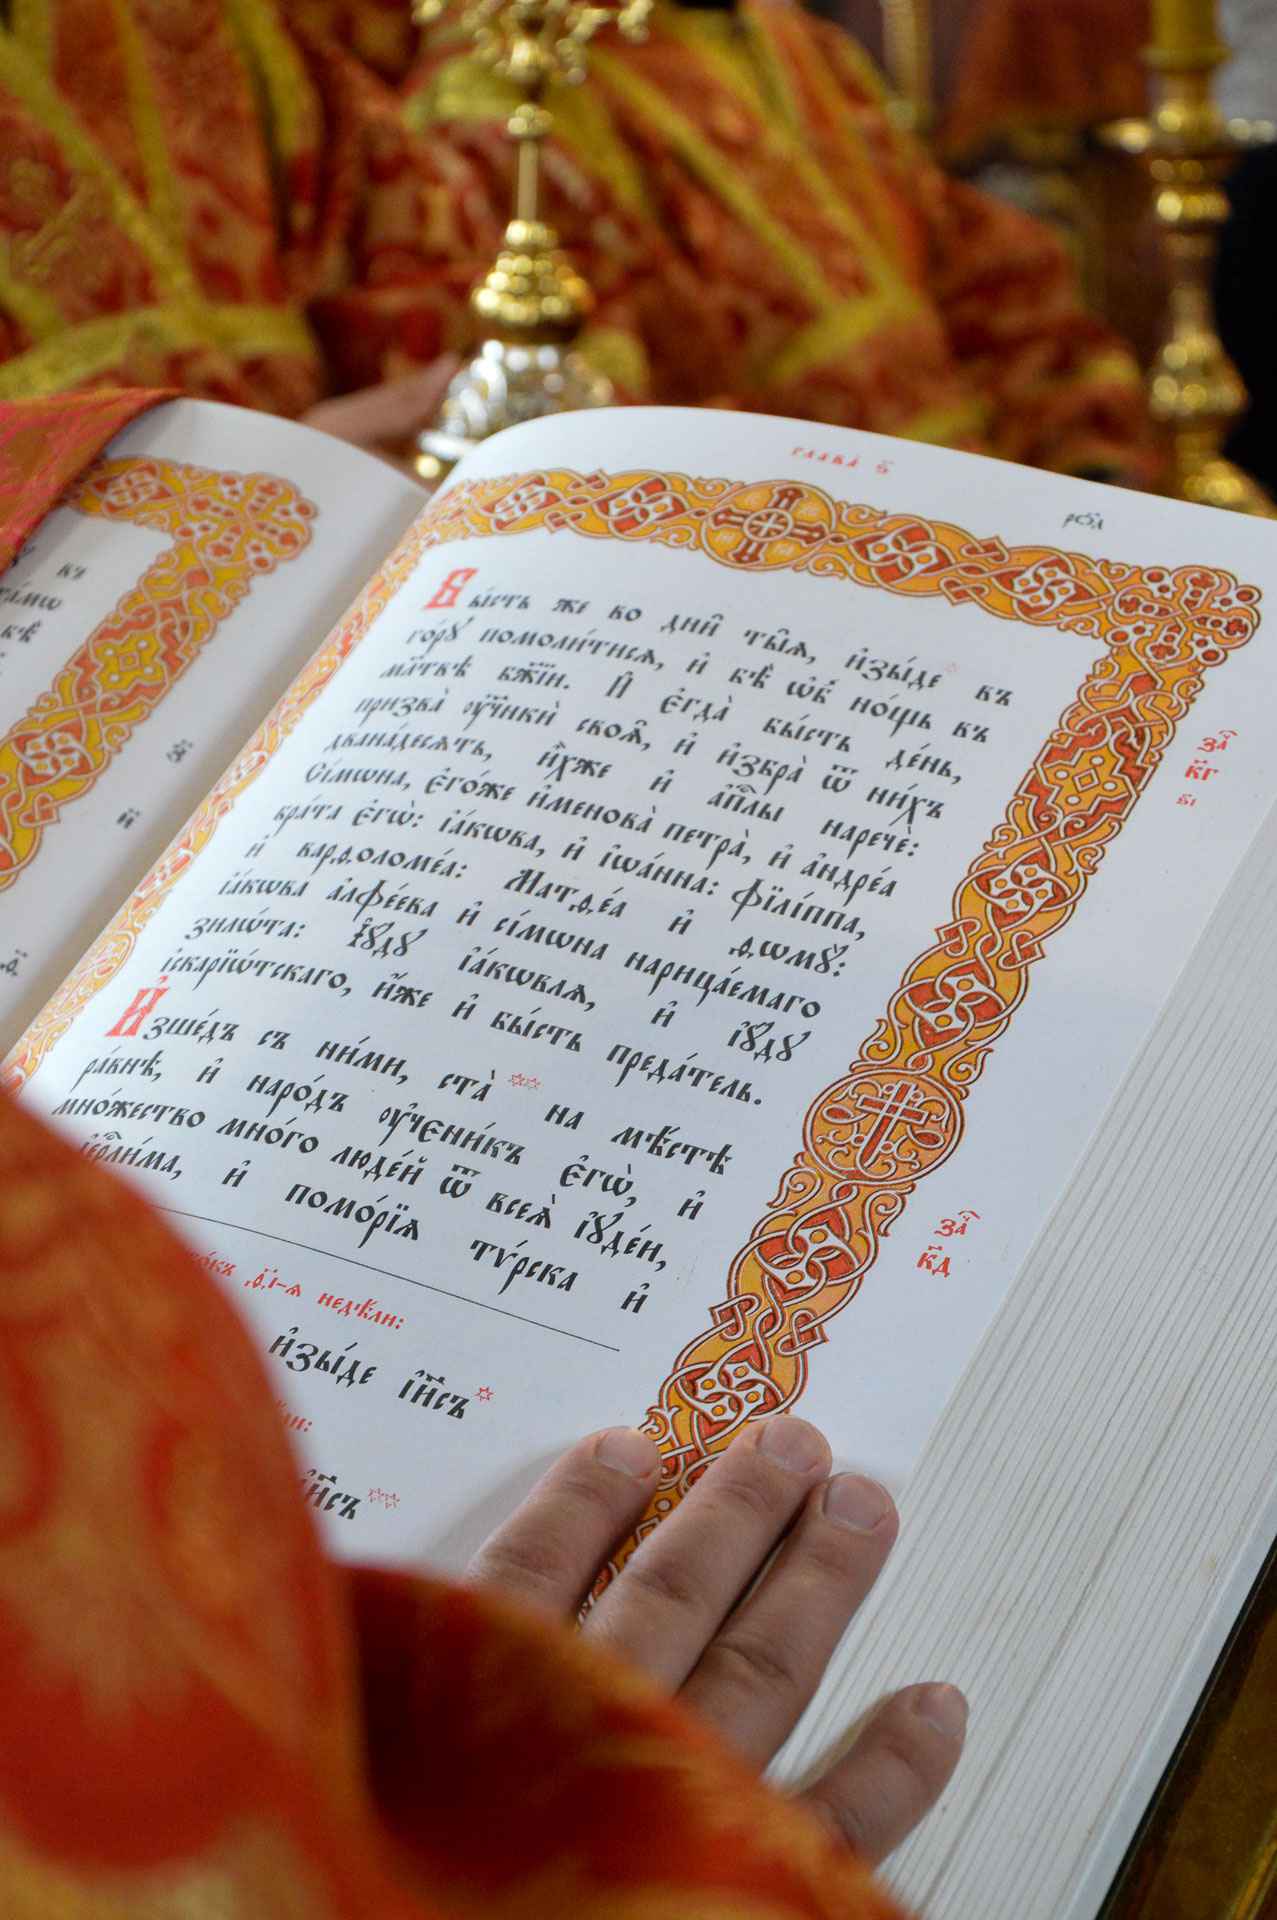 глава̀ ѕ҃
бы́сть же во дни̑ ты̑ѧ, и҆зы́де* къ
го́рꙋ помоли́тисѧ, и҆ бѣ̀ ѡ҆б̾ но́щь въ
мл҃твѣ бж҃їи. И҆ є҆гда̀ бы́сть де́нь,
призва̀ ᲂу҆ч҃нкѝ своѧ̑, и҆ и҆збра̀ ѿ ни́хъ
двана́десѧть, и҆̀хже и҆ а҆пⷭ҇лы наречѐ:
Сі́мѡна, є҆го́же и҆менова̀ петра̀, и҆ а҆ндре́а
бра́та є҆гѡ̀: і҆а́кѡва, и҆ і҆ѡа́нна: Фїлі́ппа,
и҆ варѳоломе́а: Матѳе́а и҆ ѳѡмꙋ̀:
і҆а́кѡва а҆лфе́ева и҆ сі́мѡна нарица́емаго
зилѡ́та: І҆ꙋ́дꙋ і҆а́кѡвлѧ, и҆ і҆ꙋ́дꙋ
і҆скарїѡ́тскаго, и҆́же и҆ бы́сть преда́тель.
И҆зше́дъ съ ни́ми, ста̀** на мѣ́стѣ
ра́внѣ, и҆ наро́дъ ᲂу҆чени́къ є҆гѡ̀, и҆
мно́жество мно́го люде́й ѿ всеѧ̀ і҆ꙋде́и,
і҆ерⷭ҇ли́ма, и҆ помо́рїѧ тѵ́рска и҆
недѣ́ли:
и҆зы́де і҆и҃съ*
і҆и҃съ**
за҄
к҃г
за҄
к҃д